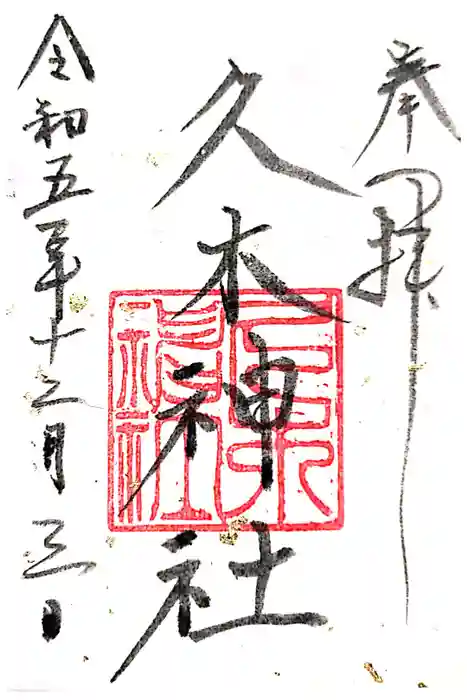 奉拝
久木神社
久木神社
令和五年十二月三日